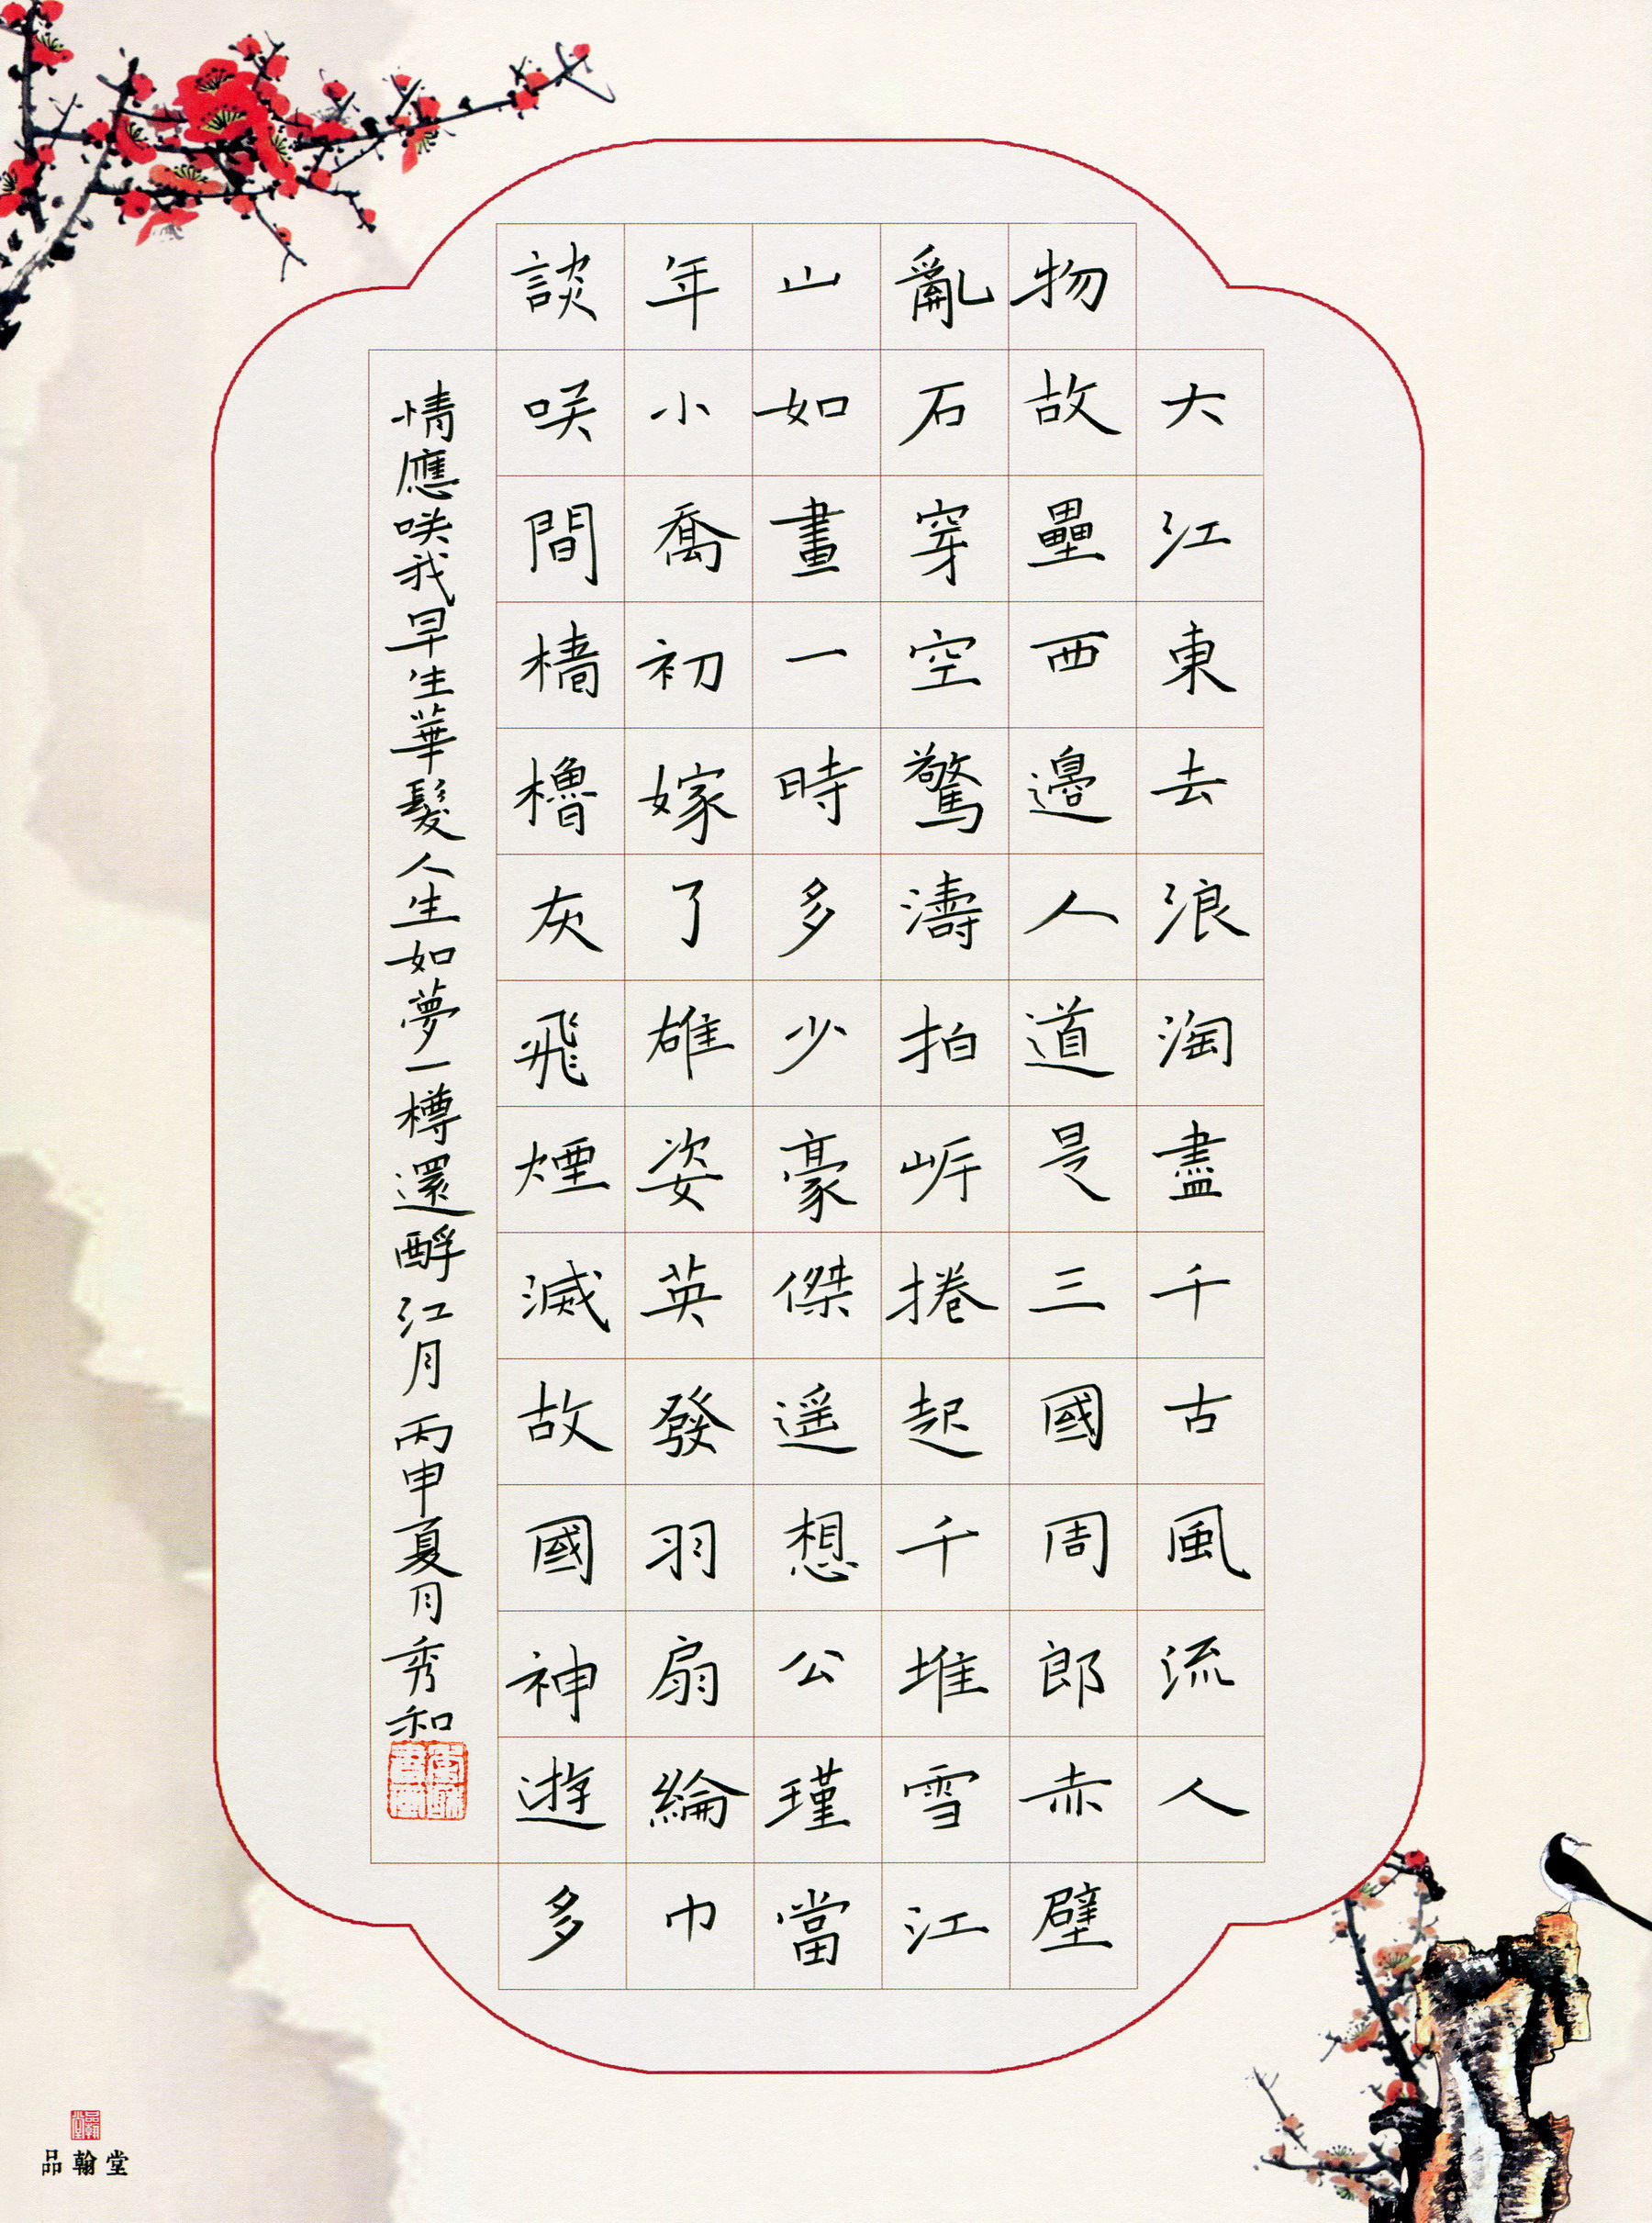 大江東去浪淘盡千古風流人
物故壘西邊人道是三國周郎赤壁
亂石穿空驚濤拍岍捲起千堆雪江
山如畫一時多少豪傑遥想公瑾當
年小喬初嫁了雄姿英發羽扇綸巾
談咲間樯櫓灰飛煙滅故國神遊多
情應咲我早生華髮人生如夢一樽還酹江月丙申夏月秀和
品翰堂